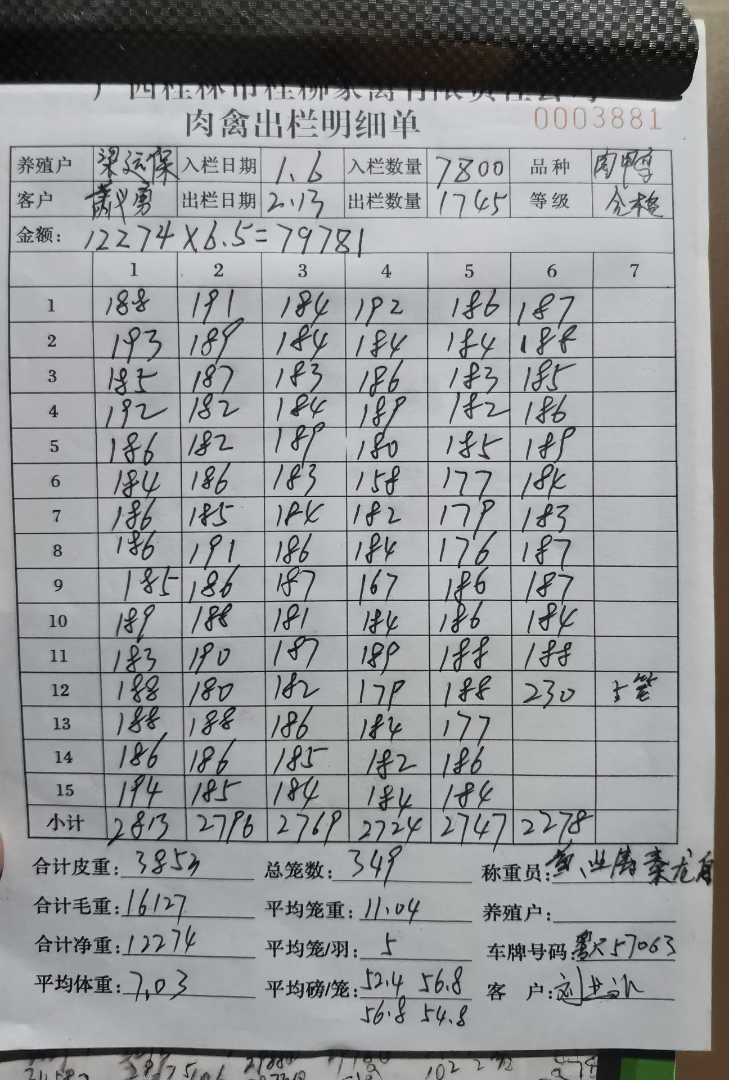 肉禽出栏明细单 0003881
养殖户 梁运保 入栏日期 1.6 入栏数量 7800 品种 肉鸭
客户 出栏日期 2.13 出栏数量 1745 等级 合格
金额: 12274×6.5=79781
1 2 3 4 5 6 7
1 188 191 184 192 186 187
2 193 189 184 184 184 188
3 185 187 183 186 183 185
4 192 182 184 189 182 186
5 186 182 189 180 185 189
6 184 186 183 158 177 184
7 186 185 184 182 179 183
8 186 191 186 184 176 187
9 185 186 187 167 186 187
10 189 188 181 184 186 184
11 183 190 187 189 188 188
12 188 180 182 179 188 230 5笔
13 188 188 186 184 177
14 186 186 185 182 186
15 194 185 184 184 184
小计 2813 2796 2769 2724 2747 2278
合计皮重: 3853 总笼数: 349 称重员:
合计毛重: 16127 平均笼重: 11.04 养殖户:
合计净重: 12274 平均笼/羽: 5 车牌号码: 57063
平均体重: 7.03 平均磅/笼: 52.4 56.8 客 户:
56.8 54.8